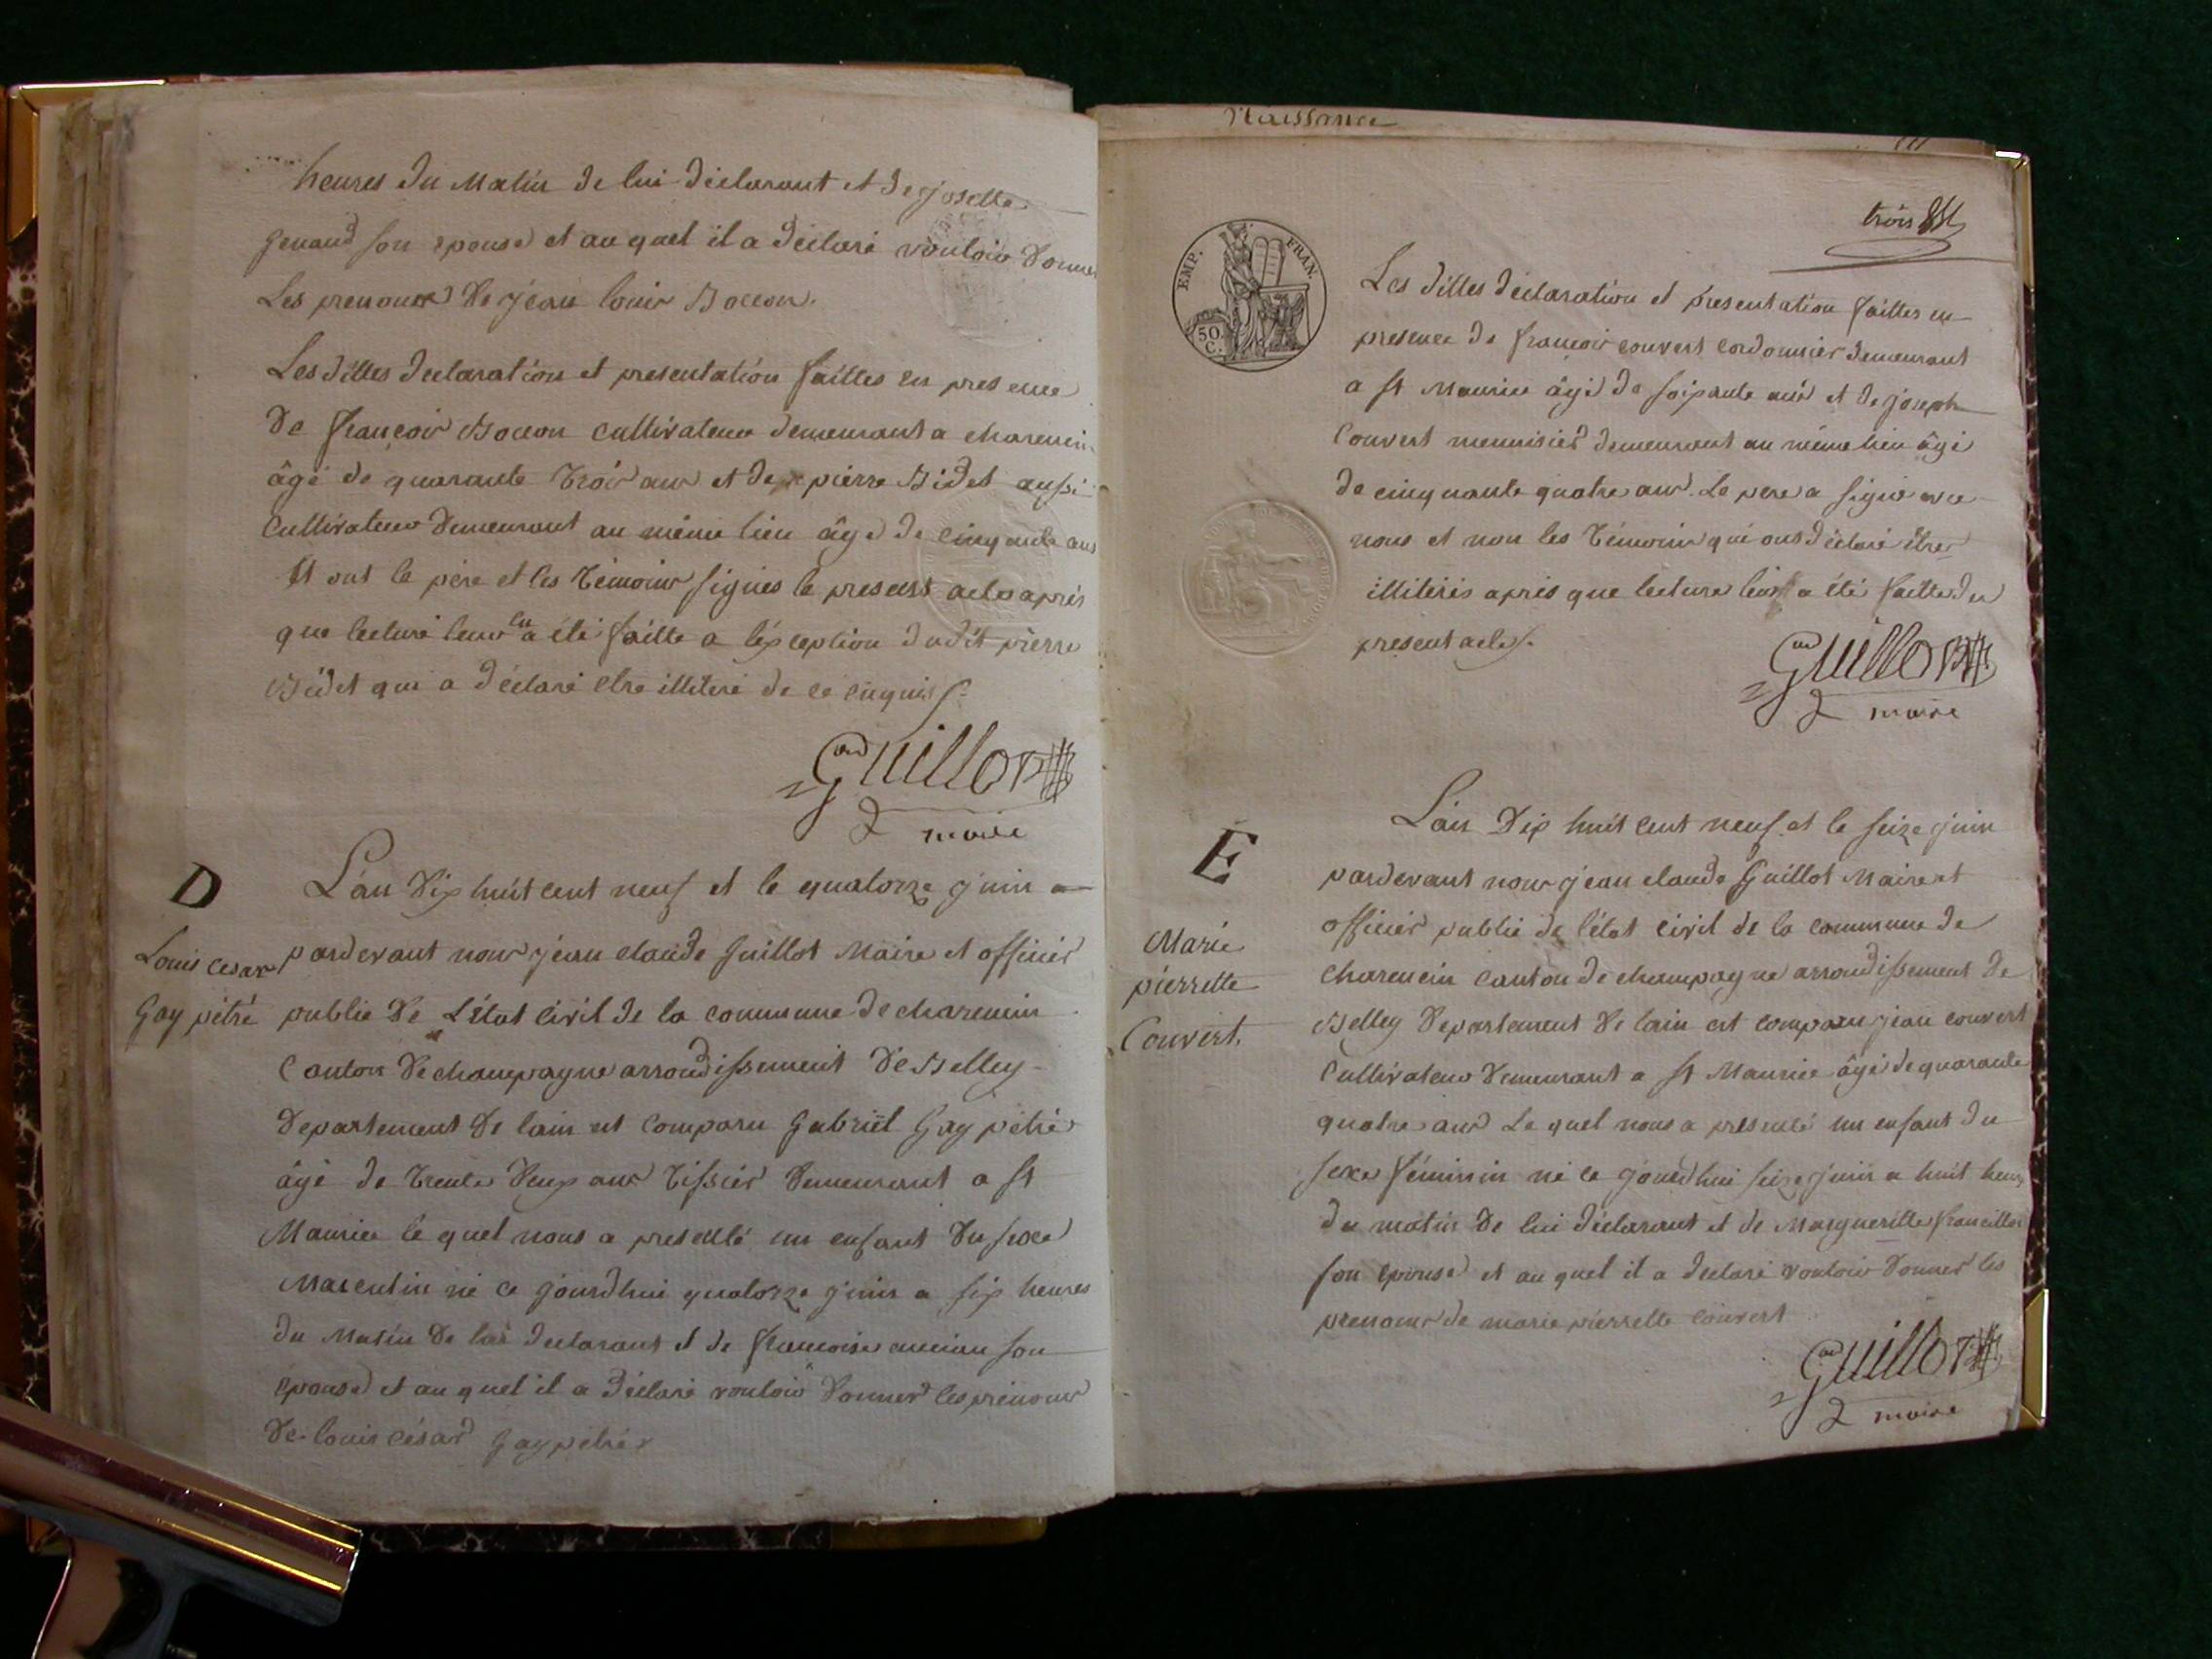 heures du Matin de lui déclarant et de josette
genand son epouse et au quel il a déclaré vouloir donner
Les prenoms de jean louis Bocon.
Les dittes déclaration et presentation faittes en presence
de françois Bocon Cultivateur demeurant a charencin
âgé de quarante trois ans et de pierre Bidet aussi
Cultivateur demeurant au même lieu âgé de cinquante ans
Et ont le père et les témoins signés le present acte après
que lecture leur en a été faitte a l'exception dudit pierre
Bidet qui a déclaré etre illiteré de ce enquis
Guillot
maire
D
L'an dix huit cent neuf et le quatorze juin
Louis César
pardevant nous jean claude Guillot Maire et officier
Gay pétré
public de L'état Civil de la commune de charencin
Canton de champagne arrondissement de Belley
département de lain est comparu Gabriël Gay pétré
âgé de trente deux ans tissier demeurant a St
Maurice le quel nous a presenté un enfant du sexe
Masculin né ce jourdhui quatorze juin a six heures
du Matin de lui declarant et de françoise ancian son
epouse et au quel il a déclaré vouloir donner les prénoms
de louis césar Gay pétré
Naissance
trois
EMP. FRAN.
50 C.
Les dittes déclaration et presentation faittes en
presence de françois couvert cordonnier demeurant
a St Maurice âgé de soixante ans et de joseph
Couvert menuisier demeurant au même lieu âgé
de cinquante quatre ans. Le pere a signé avec
nous et non les témoins qui ont déclaré être
illiterés après que lecture leur a été faitte du
present acte.
Guillot
maire
E
L'an dix huit cent neuf et le seize juin
pardevant nous jean claude Guillot Maire et
officier public de l'état civil de la commune de
Marie
pierrette
Couvert.
charencin canton de champagne arrondissement de
Belley departement de lain est comparu jean couvert
Cultivateur demeurant a St Maurice âgé de quarante
quatre ans Le quel nous a presenté un enfant du
sexe féminin né ce jourdhui seize juin a huit heures
du matin de lui déclarant et de Margueritte francillon
son epouse et au quel il a declaré vouloir donner les
prenoms de marie pierrette couvert
Guillot
maire